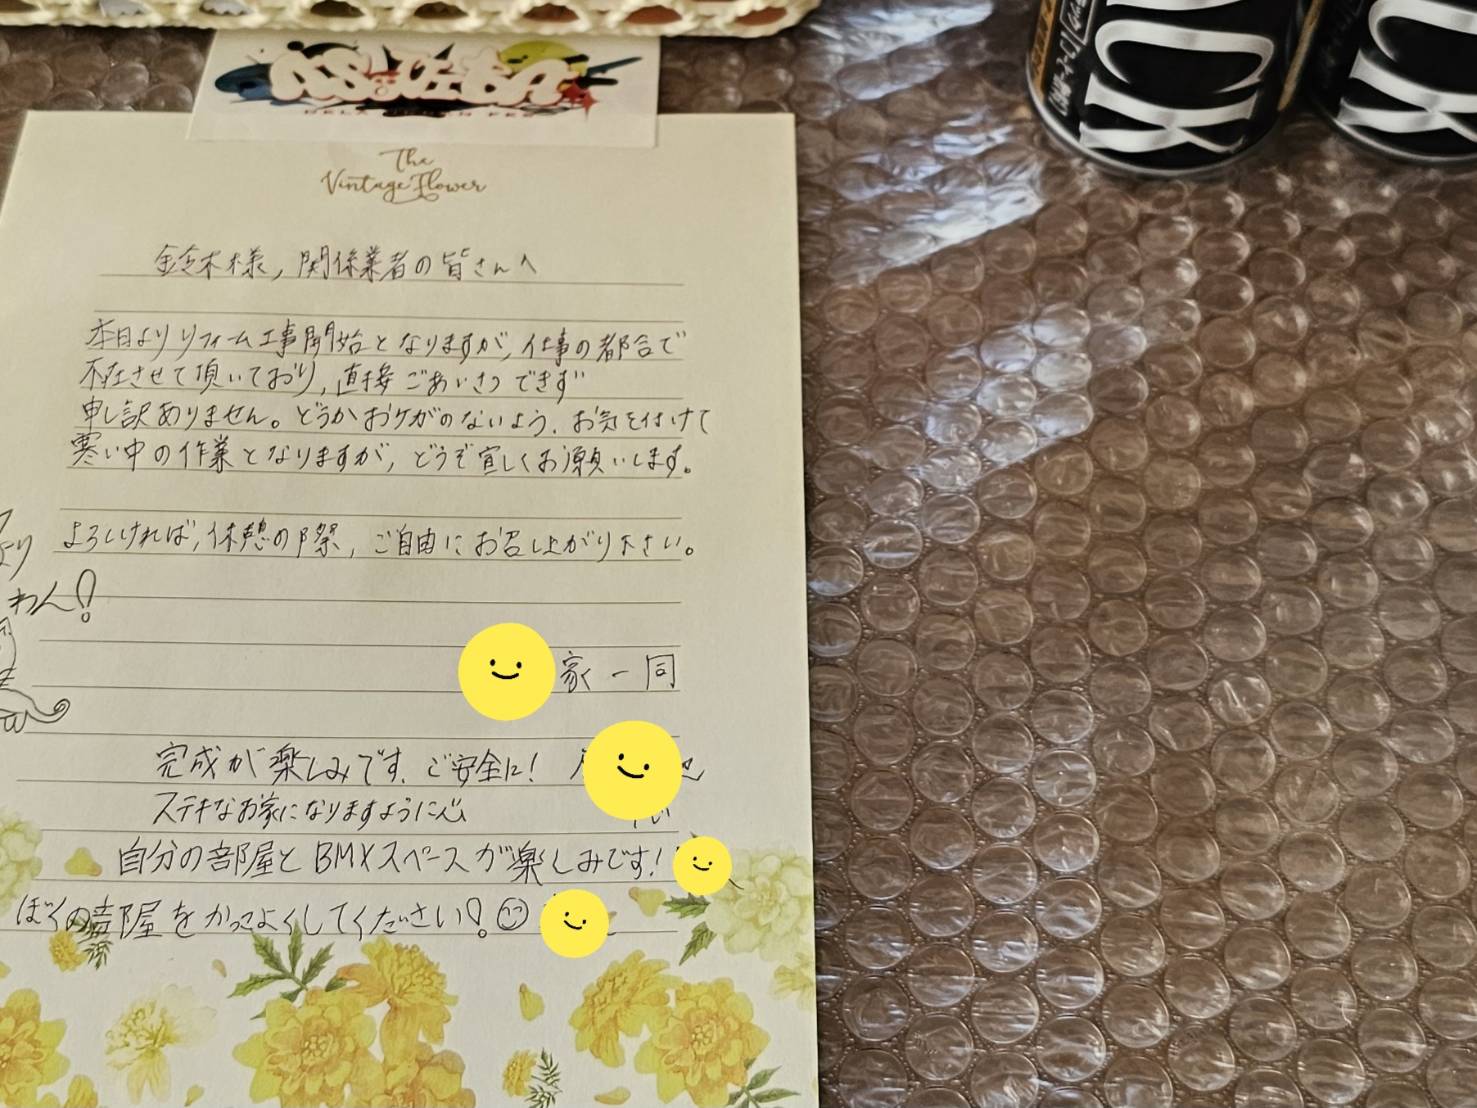 The
Vintage Flower
鈴木様, 関係業者の皆さんへ
本日よりリフォーム工事開始となりますが, 仕事の都合で
不在させて頂いており, 直接ごあいさつできず
申し訳ありません。どうかおケガのないよう. お気を付けて
寒い中の作業となりますが, どうぞ宜しくお願いします。
よろしければ, 休憩の際, ご自由にお召し上がり下さい。
より
わん!
家一同
完成が楽しみです. ご安全に!
ステキなお家になりますように
自分の部屋とBMXスペースが楽しみです!
ぼくの部屋をかっこよくしてください!